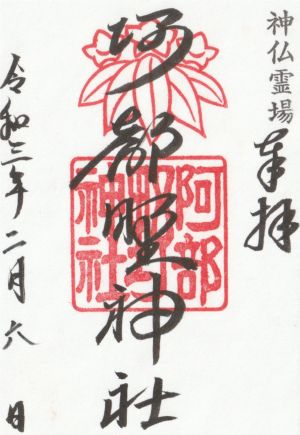 神仏霊場
奉拝
阿部野神社
阿部
野
神社
令和三年二月六日